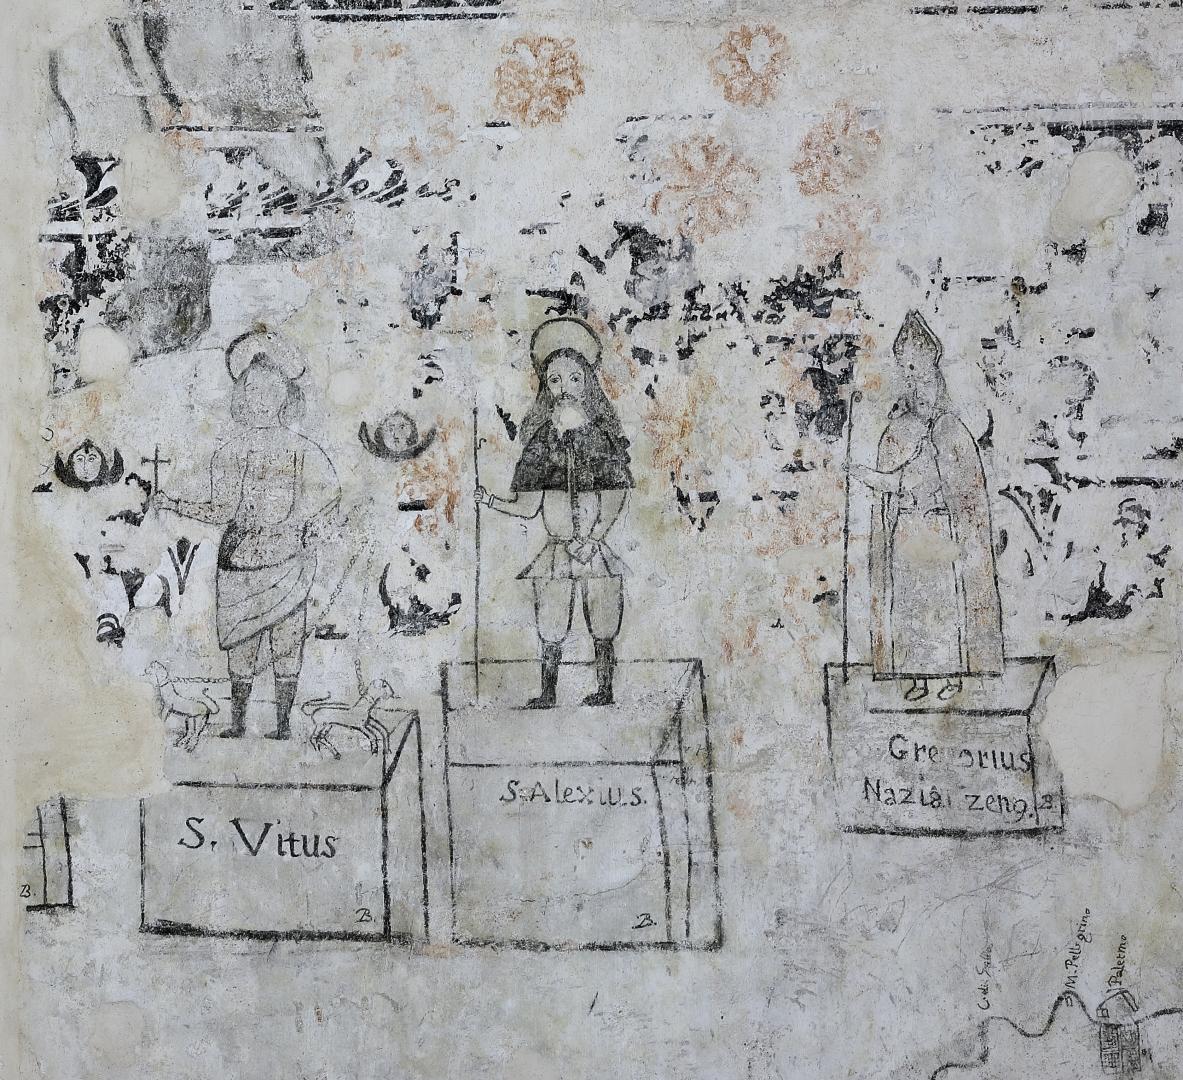 S. Vitus
B.
B.
S. Alexius.
B.
Gre orius
Nazia zeng.
B
M. Pellegrino
Palermo